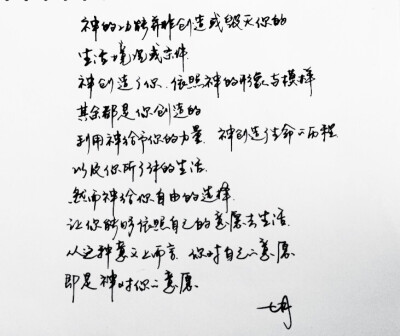 神的功能并非创造或毁灭你的
生活境况或条件
神创造了你、依照神的形象与模样
其余都是你创造的
利用神给予你的力量、神创造生命之历程
以及你所了体的生活
然而神给你自由的选择
让你能够依照自己的意愿去生活
从这种意义上而言、你对自己之意愿
即是神对你之意愿